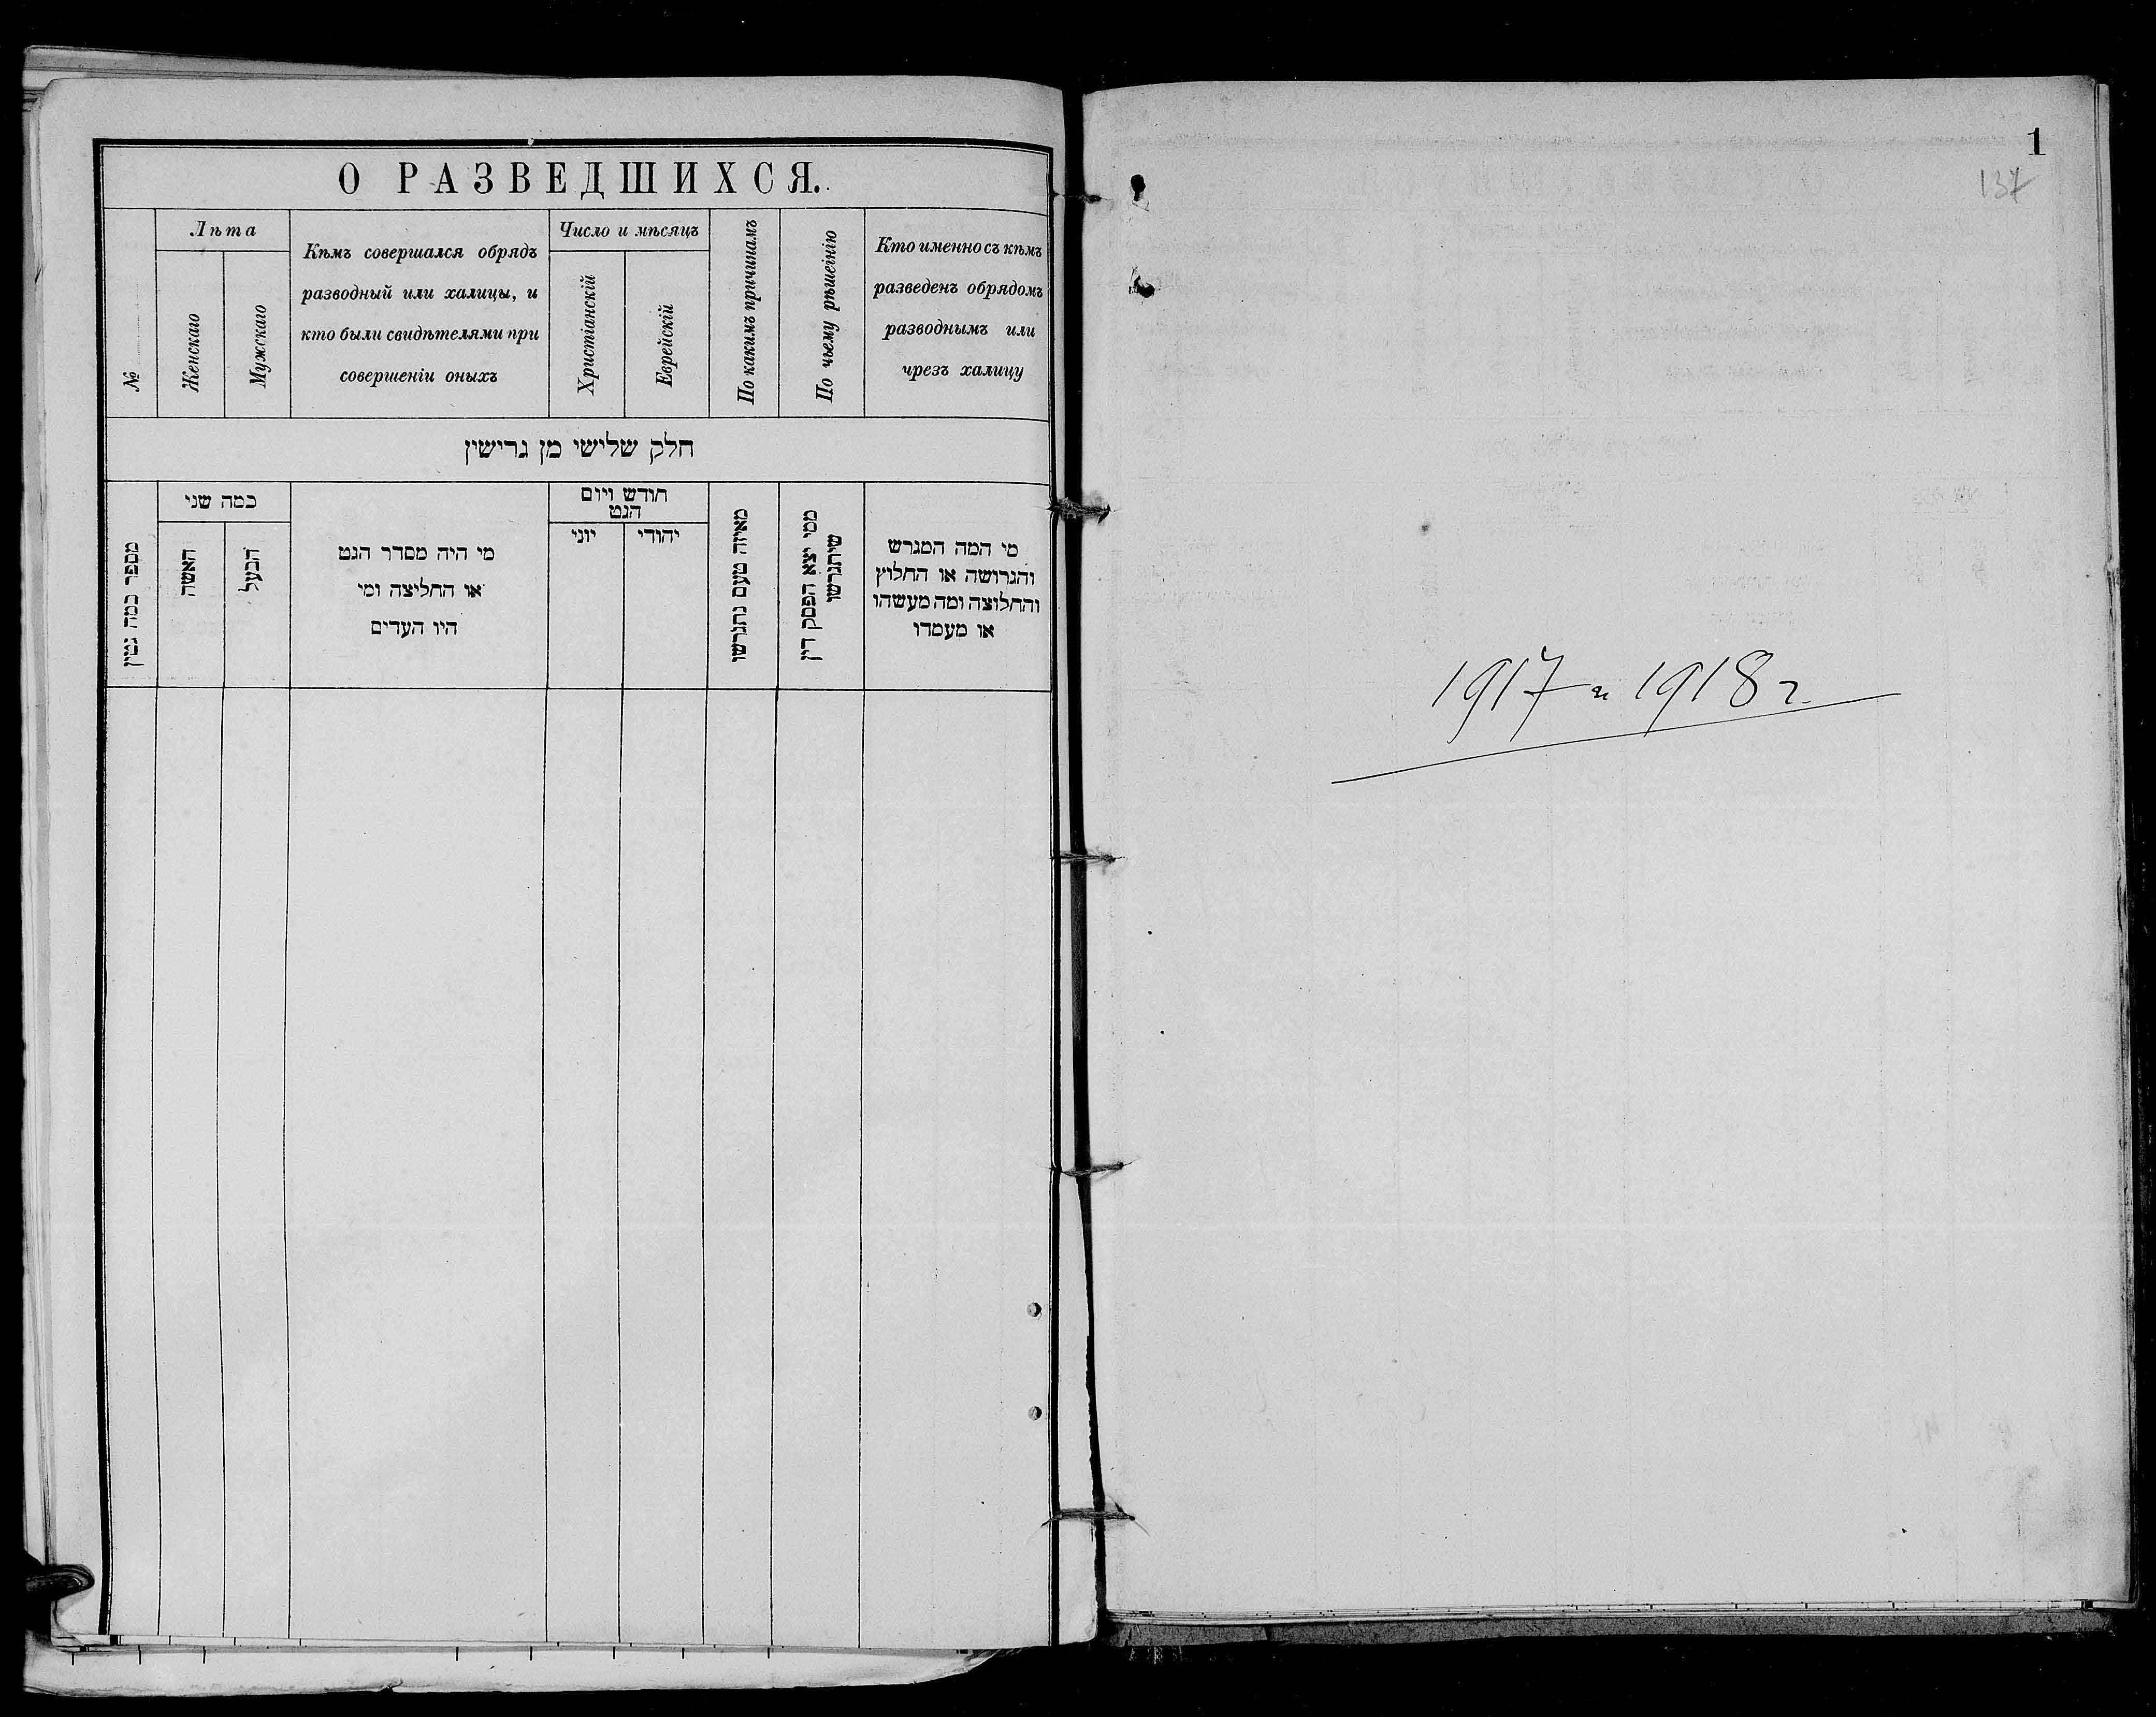 О РАЗВЕДШИХСЯ.
№
Лѣта
Женскаго
Мужскаго
Кѣмъ совершался обрядъ
разводный или халицы, и
кто были свидѣтелями при
совершеніи оныхъ
Число и мѣсяцъ
Христіанскій
Еврейскій
По какимъ причинамъ
По чьему рѣшегнію
Кто именно съ кѣмъ
разведенъ обрядомъ
разводнымъ или
чрезъ халицу
חלק שלישי מן גרישין
מספר כמה גטין
כמה שני
האשה
הבעל
מי היה מסדר הגט
או החליצה ומי
היו העדים
חודש ויום
הגט
יוני
יהודי
מאיזה טעם נתגרשו
ממי יצא הפסק דין
שיתגרשו
מי המה המגרש
והגרושה או החלוץ
והחלוצה ומה מעשהו
או מעמדו
1
137
1917 и 1918 г.